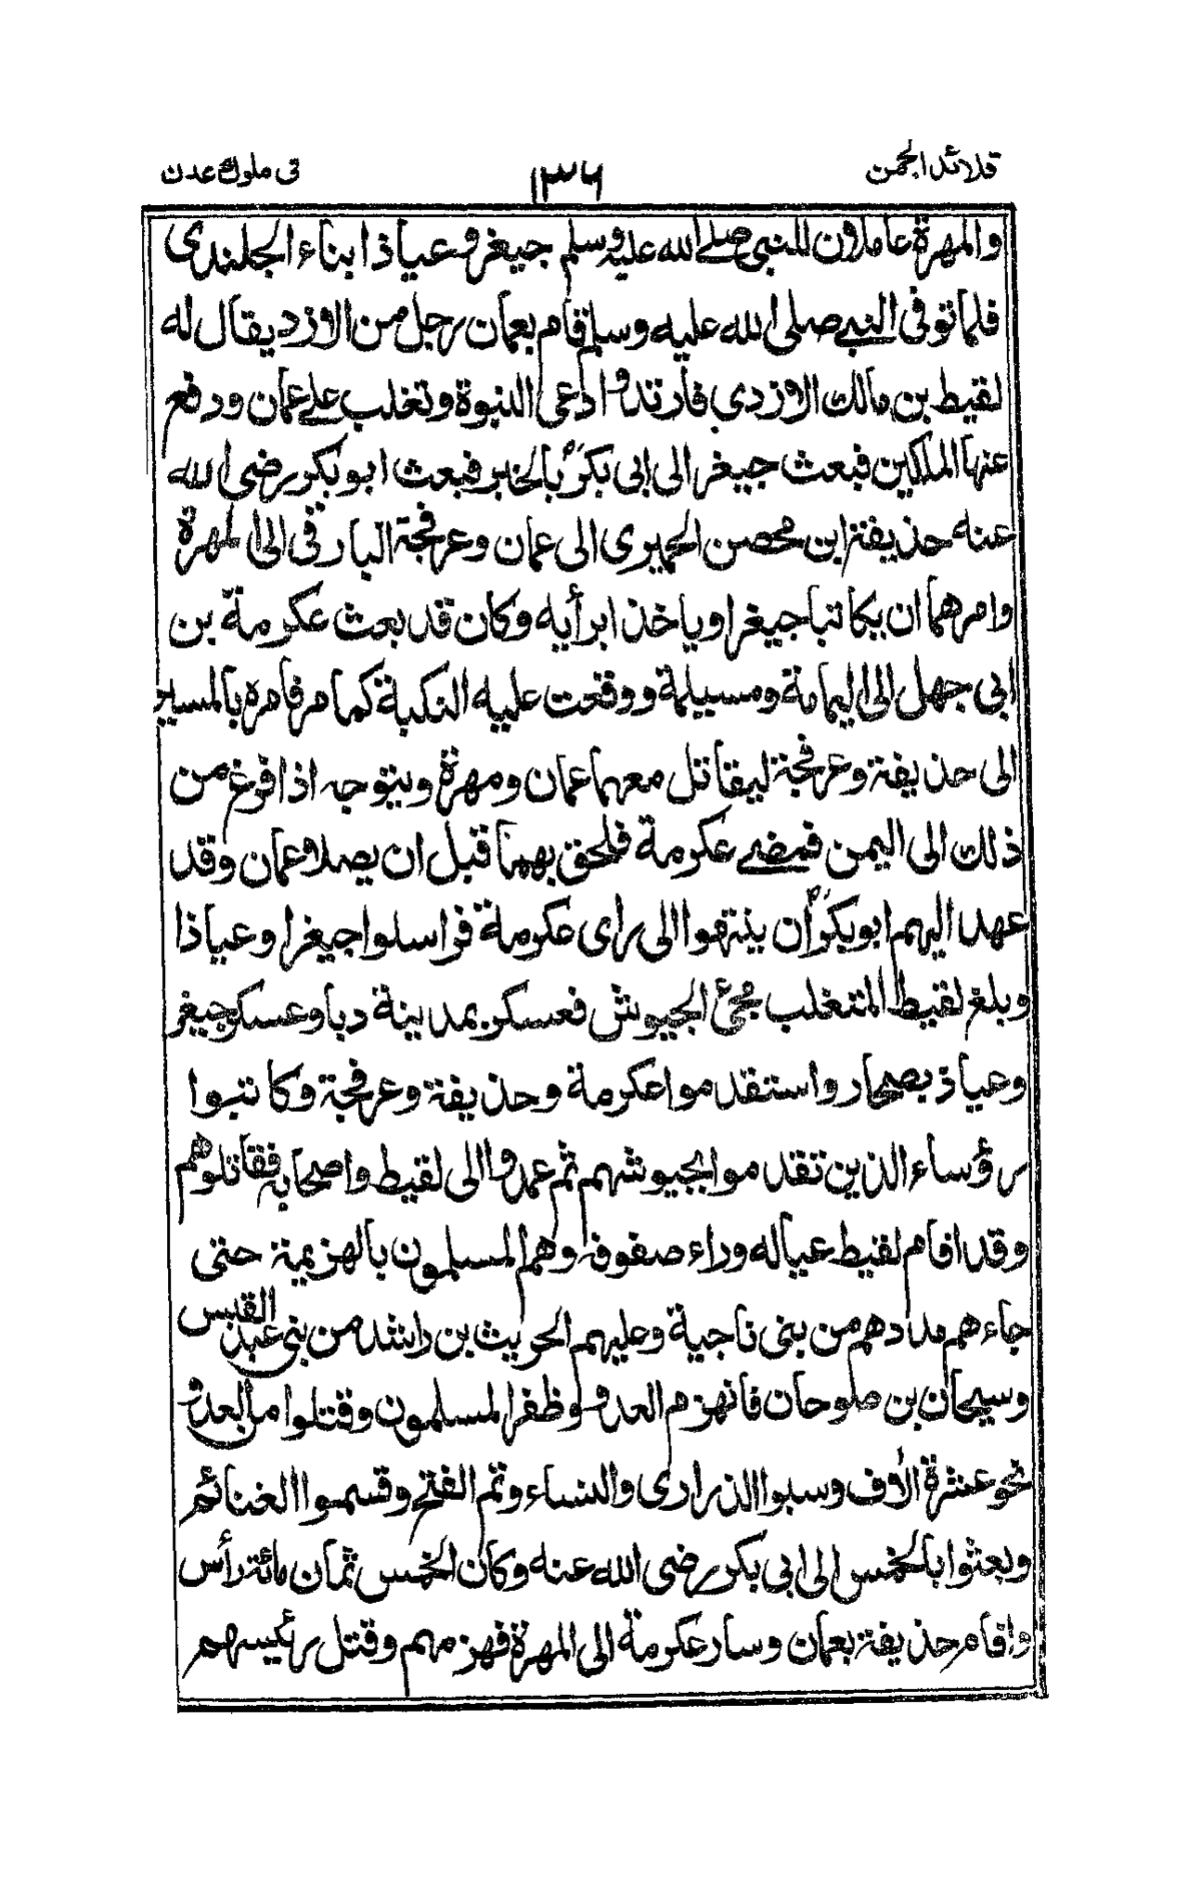 قلائد الجمن ١٣٦ فى ملوك عدن
والمهرة عاملون للنبى صلے الله عليه وسلم جيغر وعياذ ابناء الجلندى
فلما توفى النبے صلى الله عليه وسلم قام بعمان رجل من الازد يقال له
لقيط بن مالك الازدي فارتد وادعى النبوة وتغلب علے عمان ودفع
عنها الملكين فبعث جيغر الى ابى بكرؓ بالخبر فبعث ابو بكر رضى الله
عنه حذيفة ابن محصن الحميرى الى عمان وعرفجة البارقى الى المهرة
وامرهما ان يكاتبا جيغرا وياخذ ابرأيه وكان قد بعث عكرمة بن
ابى جهل الى اليمامة ومسيلمة ووقعت عليه النكبة كما مر فامره بالمسير
الى حذيفة وعرفجة ليقاتل معهما عمان ومهرة ويتوجه اذا فرغ من
ذلك الى اليمن فمضے عكرمة فلحق بهما قبل ان يصلا عمان وقد
عهد اليهم ابو بكرؓ أن ينتهوا الى راى عكرمة فراسلوا جيغرا وعياذا
وبلغ لقيط المتغلب مجئ الجيوش فعسكر بمدينة دبا وعسكر جيغر
وعياذ بصحار واستقدموا عكرمة وحذيفة وعرفجة وكاتبوا
رؤساء الذين تقدموا بجيوشهم ثم عمدوا الى لقيط واصحابه فقاتلوهم
وقد اقام لقيط عياله وراء صفوفه وهم المسلمون بالهزيمة حتى
جاءهم مددهم من بنى ناجية وعليهم الحريث بن راشد من بنى عبد القيس
وسيحان بن صلوحان فانهزم العدو وظفر المسلمون وقتلوا من العدو
نحو عشرة الٰاف وسبوا الذرارى والنساء وتم الفتح وقسموا الغنائم
وبعثوا بالخمس الى ابى بكر رضى الله عنه وكان الخمس ثمان مائة رأس
واقام حذيفة بعمان وسار عكرمة الى المهرة فهزمهم وقتل رئيسهم